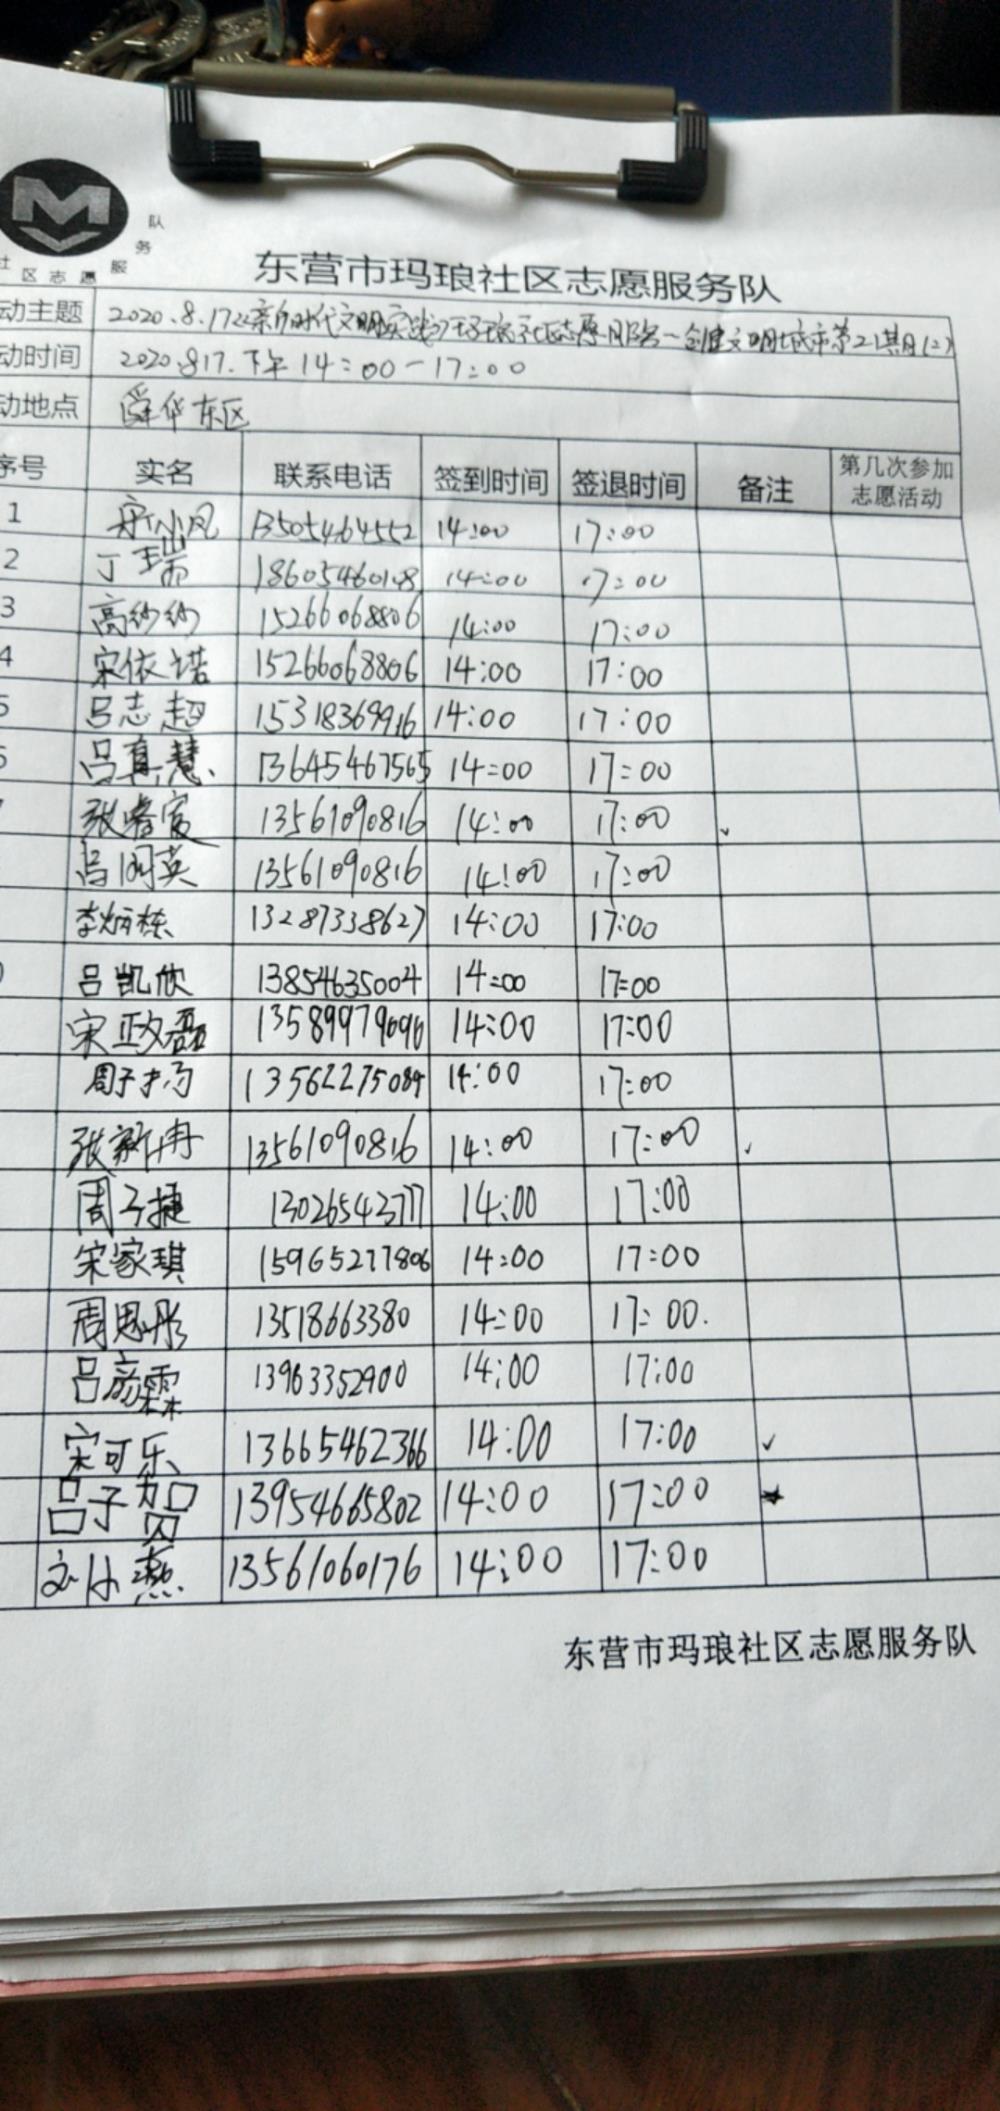 M
社区志愿服务队
东营市玛琅社区志愿服务队
动主题 2020.8.17《新时代文明实践》玛琅社区志愿服务—创建文明城市第21期(2)
动时间 2020.8.17.下午14:00-17:00
动地点 舜华东区
序号 实名 联系电话 签到时间 签退时间 备注 第几次参加志愿活动
1 13505464552 14:00 17:00
2 丁瑞 18605460108 14:00 17:00
3 高纱纱 15266068806 14:00 17:00
4 宋依诺 15266068806 14:00 17:00
5 吕志超 15318369916 14:00 17:00
吕真慧 13645467565 14:00 17:00
张睿宸 13561090816 14:00 17:00 ✓
13561090816 14:00 17:00
李炳栋 13287338627 14:00 17:00
吕凯欣 13854635004 14:00 17:00
宋政磊 13589979696 14:00 17:00
13562275084 14:00 17:00
张新冉 13561090816 14:00 17:00 ✓
周子捷 13026543777 14:00 17:00
宋家琪 15965277806 14:00 17:00
周思彤 13518663380 14:00 17:00.
吕彦霖 13963352900 14:00 17:00
宋可乐 13665462366 14:00 17:00 ✓
吕子 13954665802 14:00 17:00 ★
13561060176 14:00 17:00
东营市玛琅社区志愿服务队